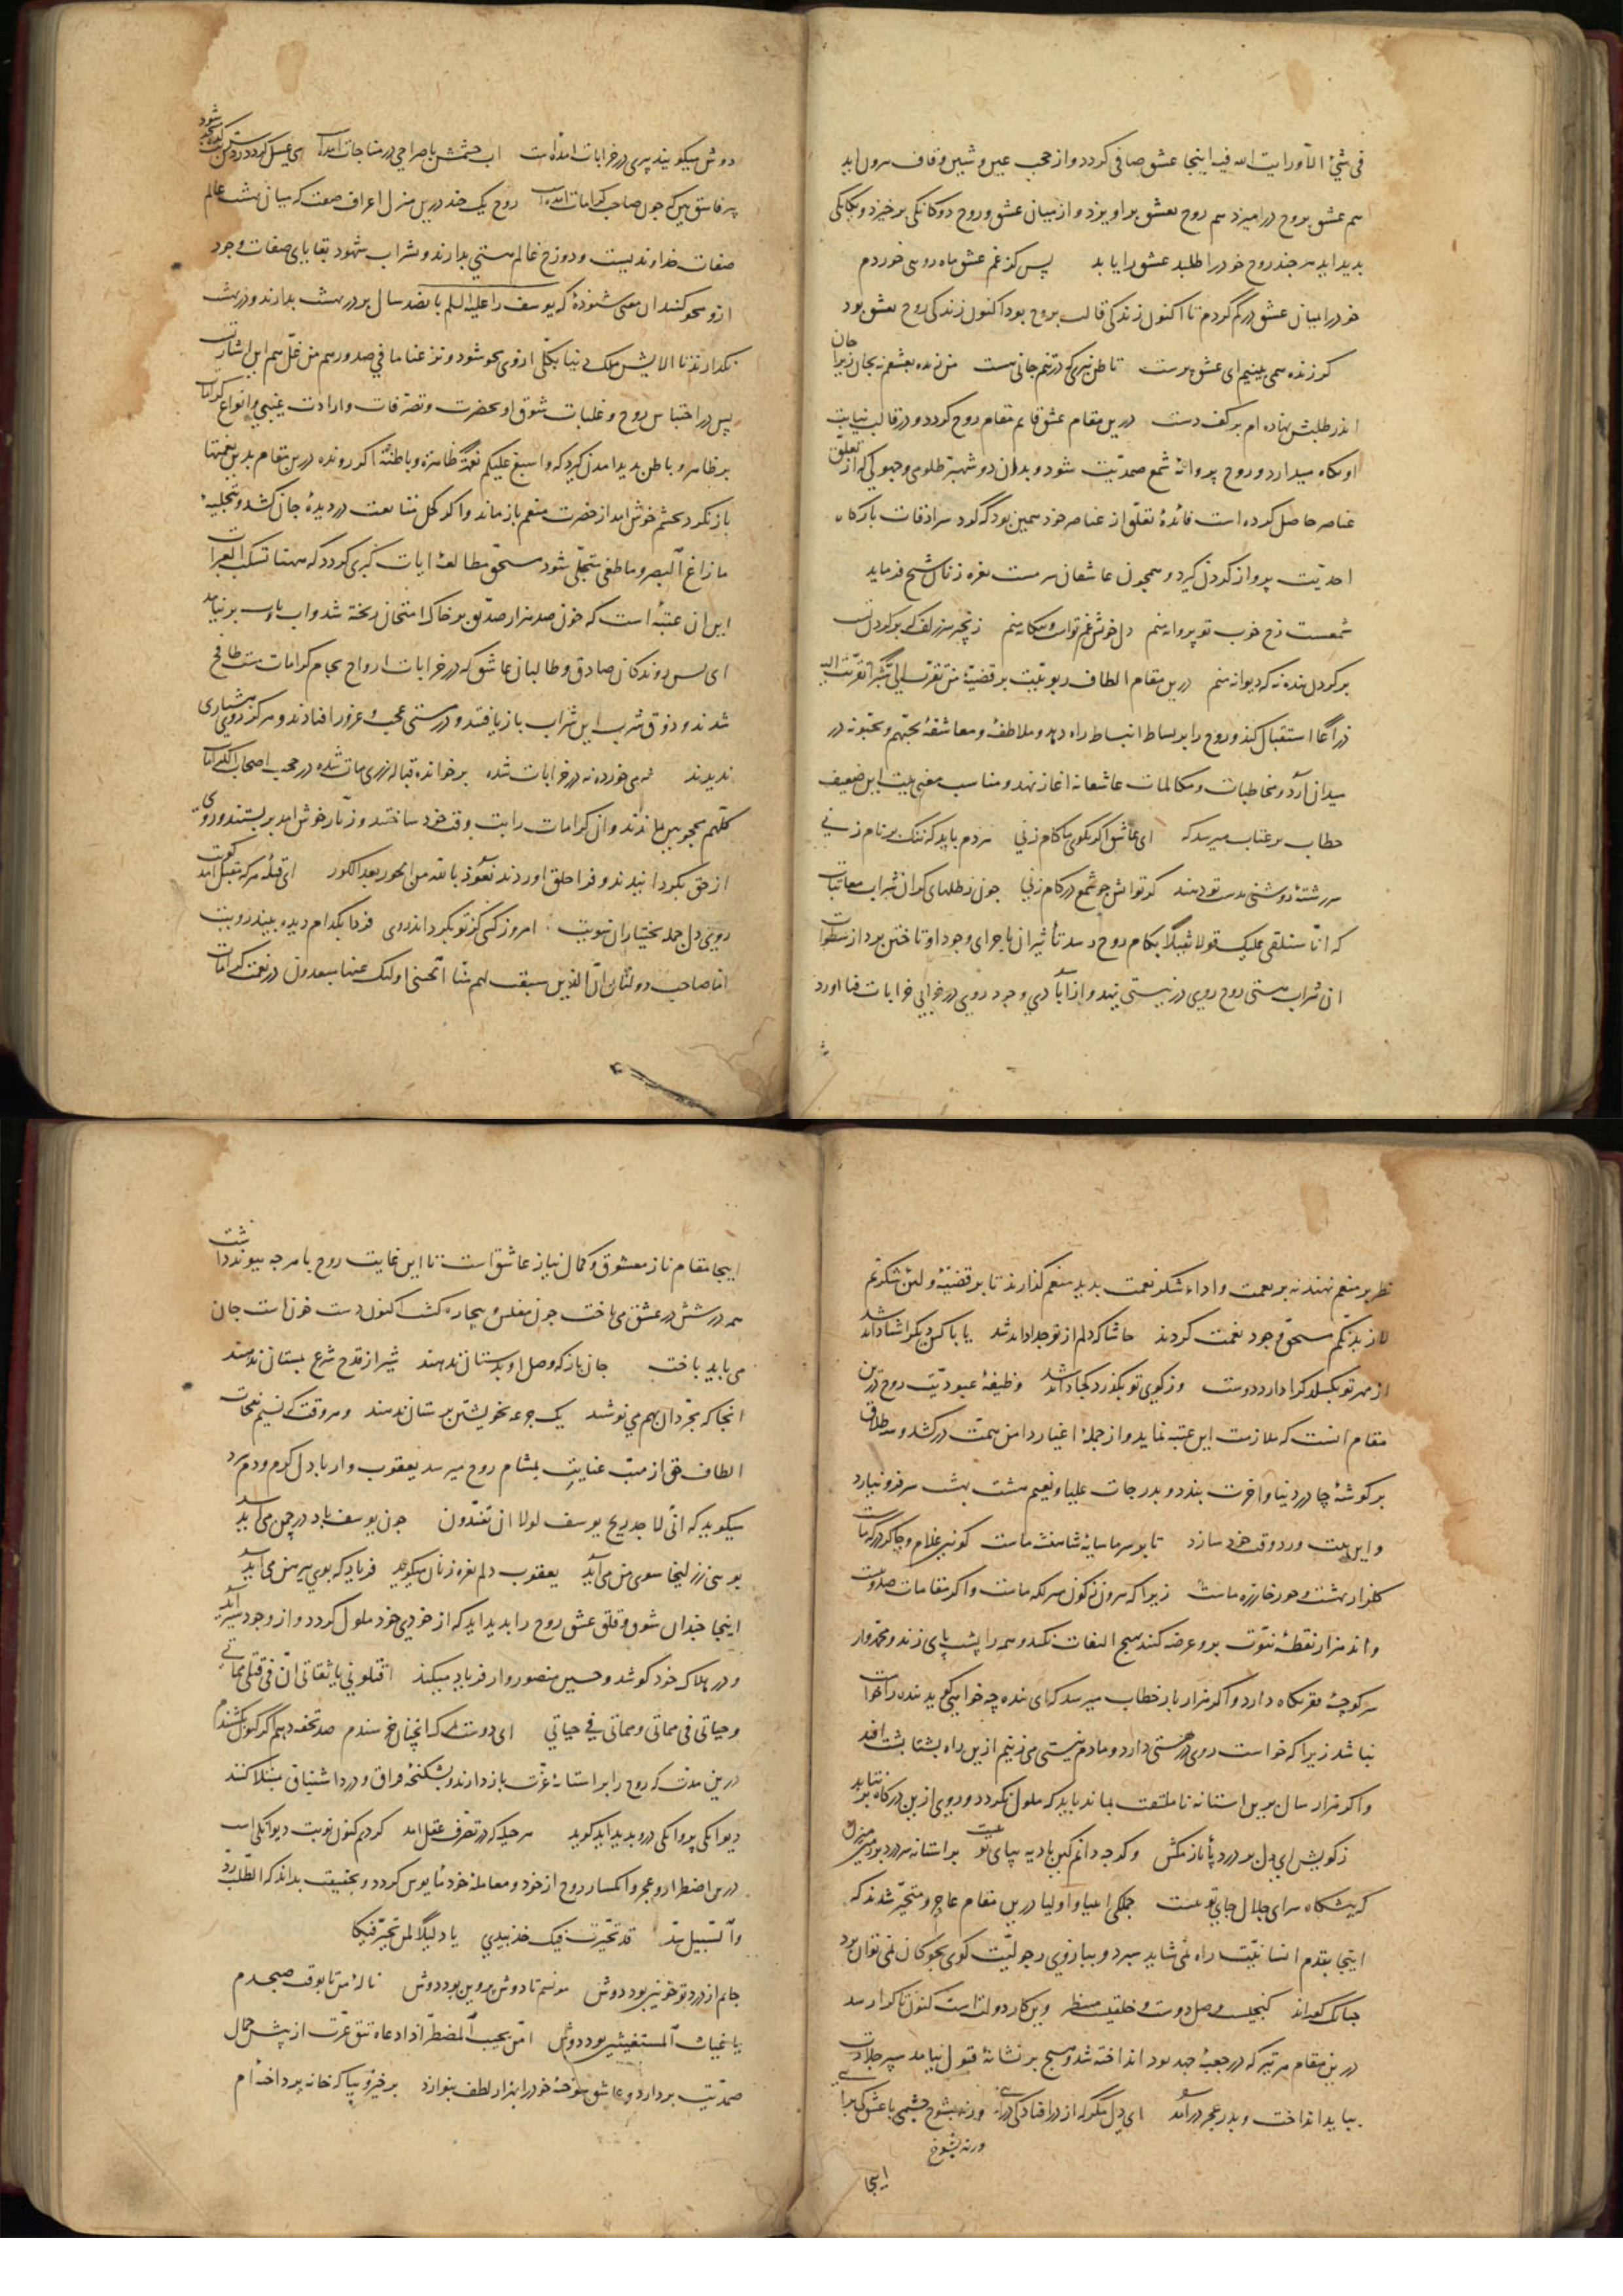 فی شیٔ الا و رایت الله فیه اینجا عشق صافی کردد و از حجب عین و شین و قاف برون اید
هم عشق بروح درامیزد هم روح بعشق براویزد و از میان عشق و روح دوکانکی برخیزد و یکانکی
بدید اید هرجند روح خود را طلبد عشق را یابد پس کز غم عشق ماه رویی خوردم
خود را میان عشق در کم کردم تا اکنون زندکی قالب بروح بود اکنون زندکی روح بعشق بود
کر زنده همی بینیم ای عشق برست تا ظن نبری که در تنم جانی هست من زنده بعشقم نه بجان زیرا جان
اندر طلبش نهاده ام بر کف دست درین مقام عشق قایم مقام روح کردد و در قالب نیابت
او نکاه میدارد و روح پروانهٔ شمع صمدیت شود و بدان دو شهبر ظلومی و جهولی که از تعلق
عناصر حاصل کرده است فائدهٔ تعلق از عناصر خود همین بود کرد کرد سرادقات بارکاه
احدیت پرواز کردن کیرد و همجون عاشقان سرمست نعره زنان شطح فرماید
شمعست رخ خوب تو پروانه منم دل خویش غم تو است و بیکانه منم زنجیر سر زلف که بر کردن تست
بر کردن بنده نه که دیوانه منم درین مقام الطاف ربوبیت بر قضیهٔ من تقرب الی شبرا تقربت الیه
ذراعا استقبال کند و روح را بر بساط انبساط راه دهد و ملاطفه و معاشقهٔ یحبهم و یحبونه در
میدان آرد و مخاطبات و مکالمات عاشقانه اغاز نهد و مناسب معنی بیت این ضعیف
خطاب بر عتاب میرسد که ای عاشق اکر بکوی ما کام زنی هر دم باید که ننک بر نام زنی
سر رشتهٔ روشنی بدست تو دهند کر تو اتش جو شمع در کام زنی جون رطلهای کران شراب معاتبات
که انا سنلقی علیک قولا ثقیلا بکام روح رسد تأثیر ان باجزای وجود او تاختن برد از سطوات
ان شراب هستی روح روی در نیستی نهد و از آبادی وجود روی در خرابی خرابات فنا اورد
دوش میکویند پیری در خرابات امده است اب چشمش با صراحی در مناجات امده
پیر فاسق بین که جون صاحب کرامات امده روح یک چند درین منزل اعراف صفت که میان بهشت عالم
صفات خداوندیست و دوزخ عالم هستی بدارند و بشراب شهود بقایای صفات وجود
ازو محو کنند ان معنی شنودهٔ که یوسف را علیه السلم پانصد سال بر در بهشت بدارند و در بهشت
نکذارند تا الایش ملک دنیا بکلی ازوی محو شود و نزعنا ما فی صدورهم من غل هم این اشارت
پس در احتباس روح و غلبات شوق او بحضرت و تصرفات واردات غیبی و انواع کرامات
بر ظاهر و باطن بدید امدن کیرد که و اسبغ علیکم نعمه ظاهرة و باطنة اکر رونده درین مقام بدین نعمتها
بازنکرد بچشم خوش امد از حضرت منعم بازماند و اکر کحل متابعت در دیدهٔ جان کشد و بتجلیهٔ
ما زاغ البصر و ما طغی متجلی شود مستحق مطالعهٔ ایات کبری کردد که ههنا تسکب العبرات
این ان عتبهٔ است که خون صد هزار صدیق بر خاک امتحان ریخته شد و اب باوس برنیامد
ای بس روندکان صادق و طالبان عاشق که در خرابات ارواح بجام کرامات مست طافح
شدند و ذوق شرب این شراب بازیافتند و در مستی عجب و غرور افتادند و هرکز روی هشیاری
ندیدند نه می خورده نه در خرابات شده برخوانده قباله نزری مات شده در حجب اصحاب الکرامات
کلهم محجوبین بماندند وان کرامات را بت وقت خود ساختند و زنار خوش امد بربستند و روی
از حق بکردانیدند و فرا خلق اوردند نعوذ بالله من الحور بعد الکور ای قبلهٔ هر که مقبل امد کویت
روی دل جمله بختیاران سویت امروز کسی کز تو بکرداند روی فردا بکدام دیده بیند رویت
اما صاحب دولتان ان الذین سبقت لهم منا الحسنی اولئک عنها مبعدون در نعمت کرامات
نظر بر منعم نهند نه بر نعمت و اداء شکر نعمت بدید منعم کذارند تا بر قضیهٔ و لئن شکرتم
لازیدنکم مستحق وجود نعمت کردند حاشا که دلم از تو جدا داند شد یا با کس دیکر اشنا داند شد
از مهر تو بکسلد کرا دارد دوست وز کوی تو بکذرد کجا داند شد وظیفهٔ عبودیت روح درین
مقام انست که ملازمت این عتبه نماید و از جملهٔ اغیار دامن همت درکشد و سه طلاق
بر کوشهٔ چادر دنیا و اخرت بندد و بدرجات علیا و نعیم هشت بهشت سر فرو نیارد
و این بیت ورد وقت خود سازد تا بر سر ما سایهٔ شاهنشه ماست کونین غلام و چاکر درکه ماست
کلزار بهشت و حور خار ره ماست زیرا که برون ز کون منزلکه ماست و اکر مقامات صد و بیست
و اند هزار نقطهٔ نبوت برو عرضه کنند هیج التفات نکند و همه را پشت پای زند و محمدوار
سر کوچهٔ فقر نکاه دارد و اکر هزار بار خطاب میرسد که ای بنده چه خواهی کوید بنده را خواست
نباشد زیرا که خواست روی در هستی دارد و ما دم نیستی می زنیم ازین راه بشتا بشت افتد
و اکر هزار سال برین استانه ناملتفت بماند باید که ملول نکردد و روی ازین درکاه برنتابد
ز کویش ای دل پر درد پا باز مکش و کرجه دانم کین بادیه بپای تو نیست بر استانه سر درد بر زمین میزن
که پیشکاه سرای جلال جای تو نیست جملکی انبیا و اولیا درین مقام عاجز و متحیر شدند که
اینجا بقدم انسانیت راه نمی شاید سپرد و ببازوی رجولیت کوی بجوکان نمی توان برد
کنجیست وصل دوست و خلقیست منتظر وین کار دولتست کنون تا کرا رسد
درین مقام هر تیر که در جعبهٔ جهد بود انداخته شد و هیج بر نشانهٔ قبول نیامد سپر جلادت
بباید انداخت و بدر عجز درآمد ای دل مکر که از در افتادکی درآئی ورنه بشوخ چشمی با عشق کی برآئی
ورنه بشوخ
اینجا
اینجا مقام ناز معشوق و کمال نیاز عاشق است تا این غایت روح با هر جه پیوند داشت
همه در شش در عشق می باخت جون مفلس و بیچاره کشت اکنون دست خون است جان
می باید باخت جان باز که وصل او بدستان ندهند شیر از قدح شرع بمستان ندهند
انجا که مجردان بهم می نوشند یک جرعه بخویشتن پرستان ندهند و هر وقت که نسیم نفحات
الطاف حق از مهب عنایت بمشام روح میرسد یعقوب وار با دل کرم و دم سرد
میکوید که انی لاجد ریح یوسف لولا ان تفندون جون یوسف باد در چمن می آید
بویی ز زلیخا سوی من می آید یعقوب دلم نعره زنان میکوید فریاد که بوی پیرهن می آید
اینجا جندان شوق و قلق عشق روح را بدید اید که از خودی خود ملول کردد و از وجود سیر آید
و در هلاک خود کوشد و حسین منصور وار فریاد میکند اقتلونی یا ثقاتی ان فی قتلی حیاتی
و حیاتی فی مماتی و مماتی فی حیاتی ای دوست که انچنان خرسندم صد تحفه دهم اکر کنون بکشندم
درین مدت که روح را بر استانهٔ عزت بازدارند و بشکنجهٔ فراق و درد اشتیاق مبتلا کنند
دیوانکی پروانکی درو بدید اید کوید هر حیله که در تصرف عقل امد کردیم کنون نوبت دیوانکی است
درین اضطرار و عجز و انکسار روح از خود و معاملهٔ خود مأیوس کردد و بحقیقت بداند که الطلب رد
و السبیل سد قد تحیرت فیک خذ بیدی یا دلیلا لمن تحیر فیکا
جانم از درد تو خونین بود دوش مونسم تا دوش پروین بود دوش نالهٔ من تا بوقت صبحدم
یا غیاث المستغیثین بود دوش امن یجیب المضطر اذا دعاه تتق عزت از پیش جمال
صمدیت بردارد و عاشق سوختهٔ خود را بهزار لطف بنوازد برخیز و بیا که خانه پرداخته ام